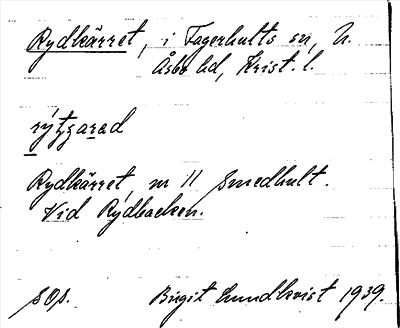 Rydkärret, i Fagerhults sn, N.
Åsbo hd, Krist. l.
rýtʒarad
Rydkärret, nr 11 Smedhult.
Vid Rydbacken.
SOp.
Birgit Lundkvist 1939.